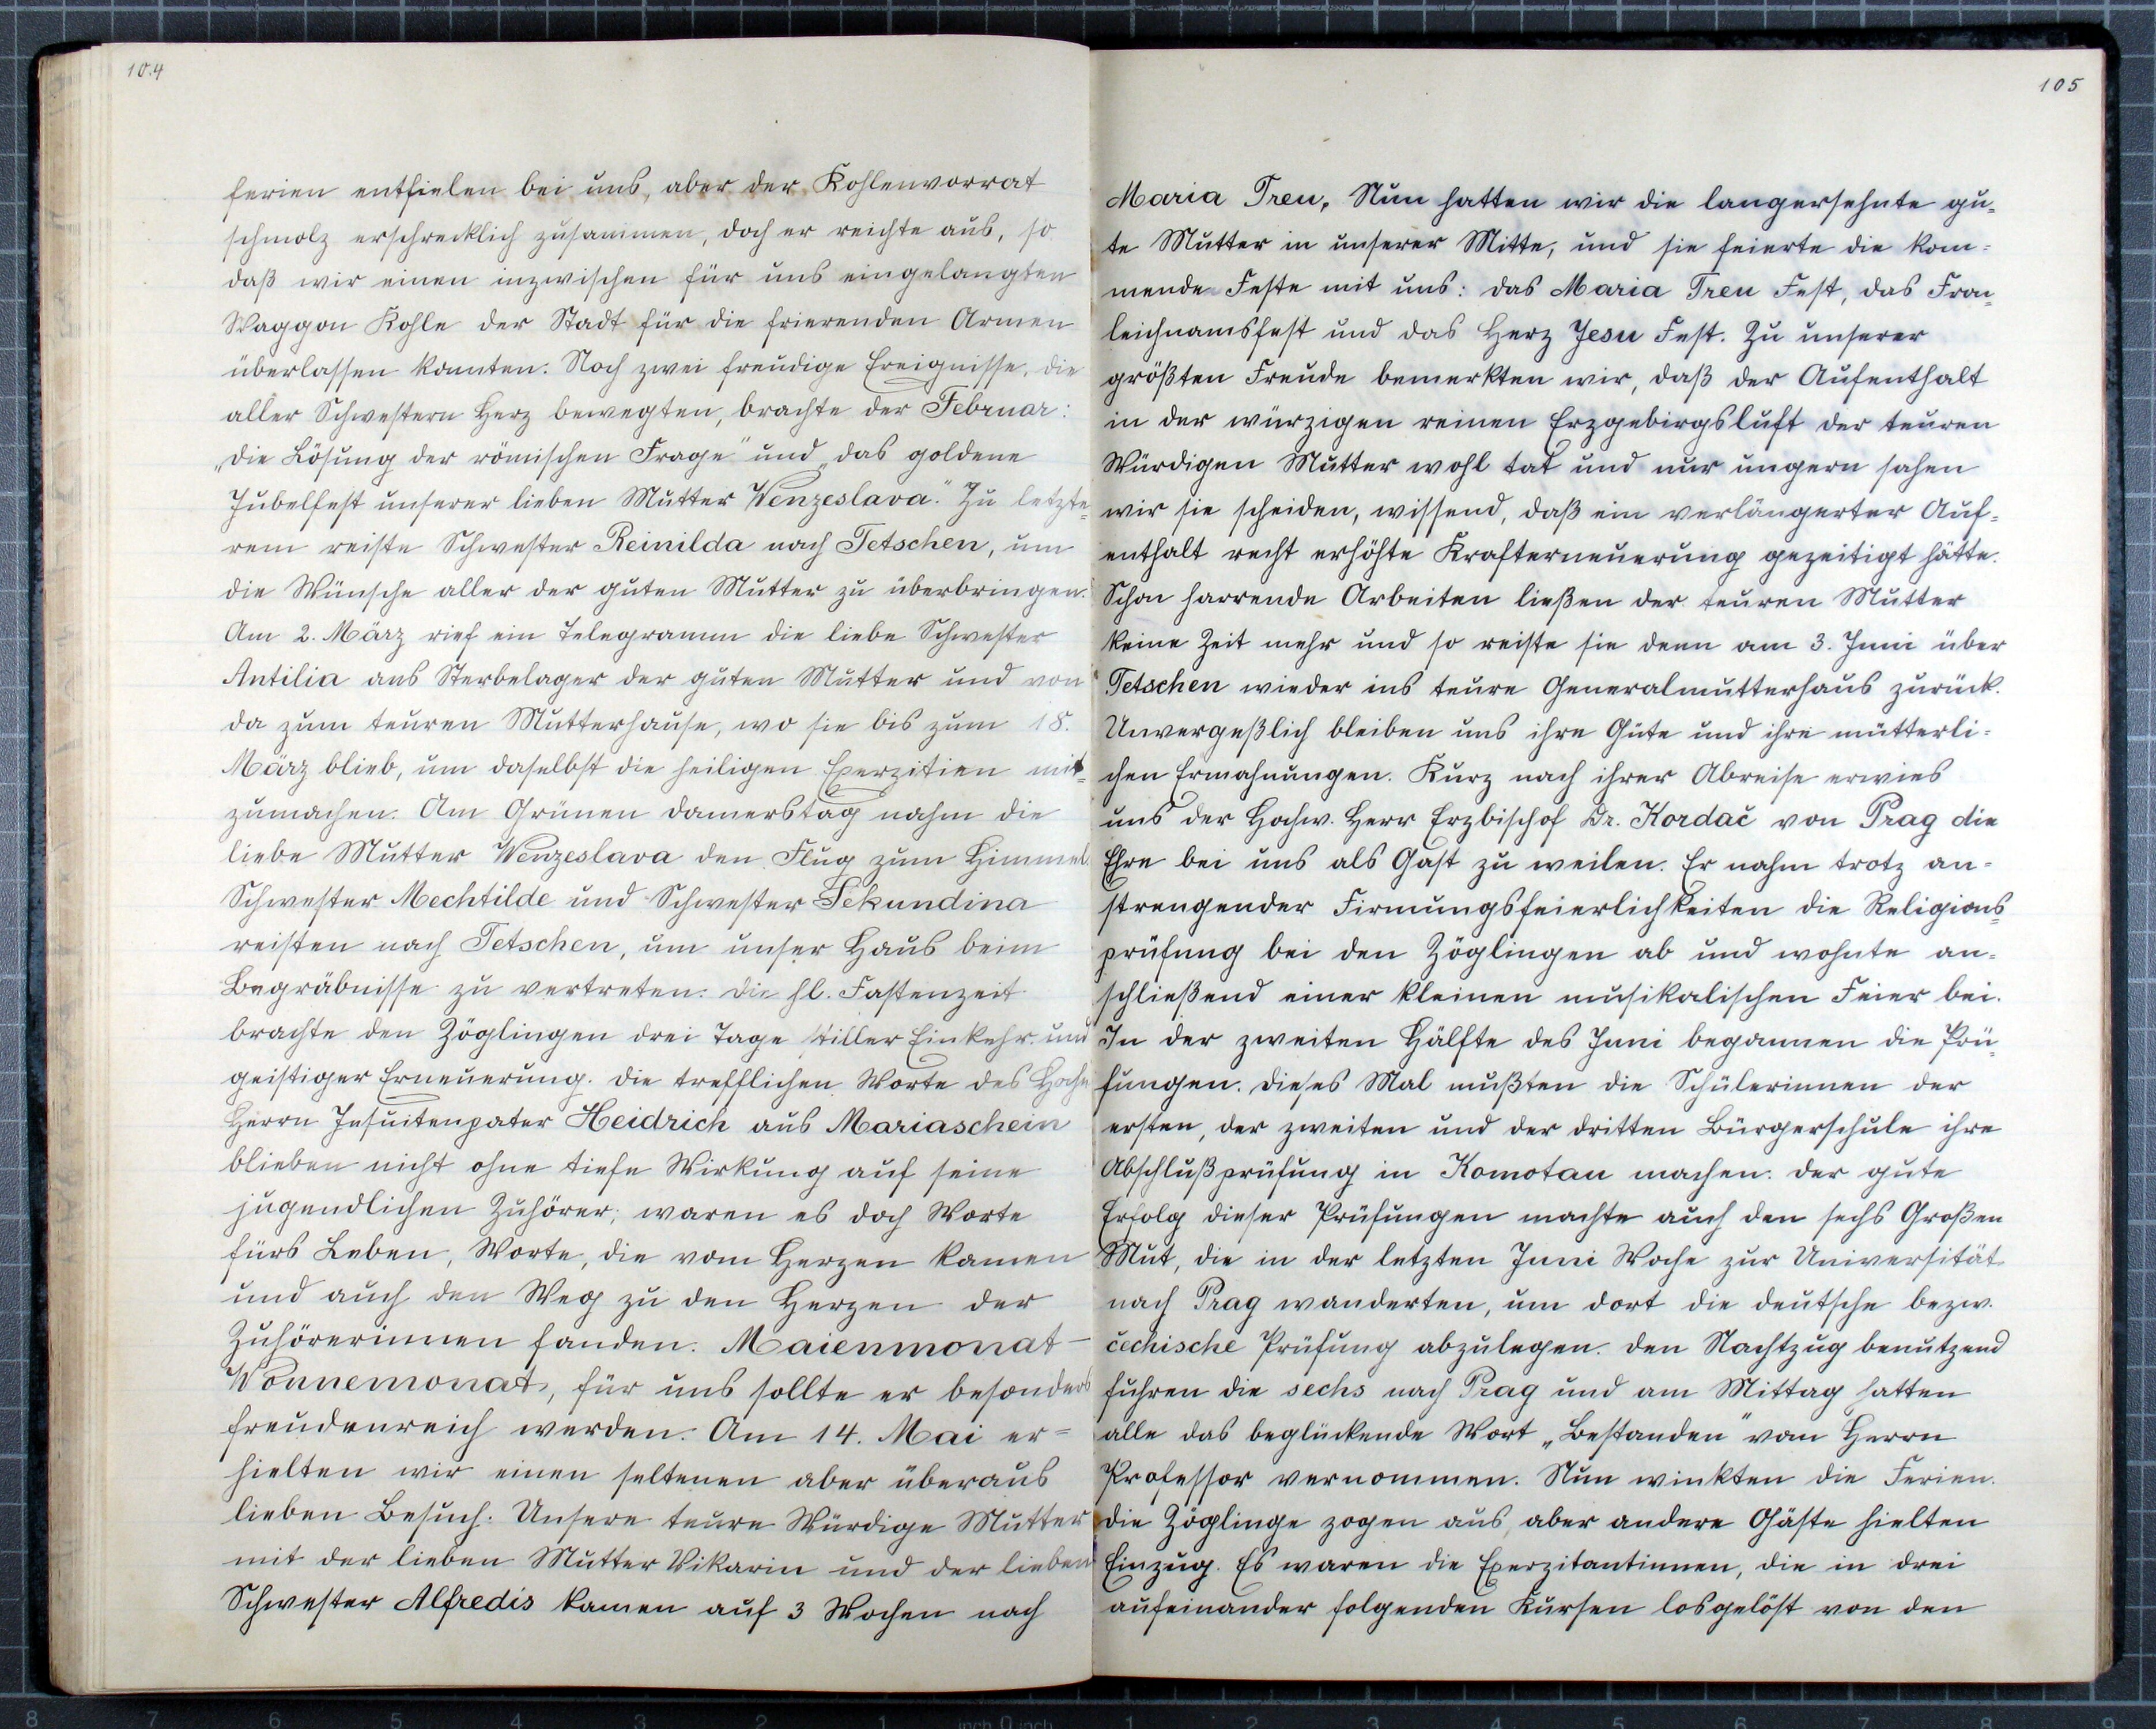 104
ferien entfielen bei uns, aber der Kohlenvorrat
schmolz erschrecklich zusammen, doch er reichte aus, so
daß wir einen inzwischen für uns eingelangten
Waggon Kohle der Stadt für die frierenden Armen
überlassen konnten. Noch zwei freudige Ereignisse, die
aller Schwestern Herz bewegten, brachte der Februar:
„die Lösung der römischen Frage" und „das goldene
Jubelfest unserer lieben Mutter Wenzeslava." Zu letzte=
rem reiste Schwester Reinilda nach Tetschen, um
die Wünsche aller der guten Mutter zu überbringen.
Am 2. März rief ein Telegramm die liebe Schwester
Antilia ans Sterbelager der guten Mutter und von
da zum teuren Mutterhause, wo sie bis zum 18.
März blieb, um daselbst die heiligen Exerzitien mit=
zumachen. Am Grünen Donnerstag nahm die
liebe Mutter Wenzeslava den Flug zum Himmel.
Schwester Mechtilde und Schwester Sekundina
reisten nach Tetschen, um unser Haus beim
Begräbnisse zu vertreten. Die hl. Fastenzeit
brachte den Zöglingen drei Tage stiller Einkehr und
geistiger Erneuerung. Die trefflichen Worte des Hochw
Herrn Jesuitenpater Heidrich aus Mariaschein
blieben nicht ohne tiefe Wirkung auf seine
jugendlichen Zuhörer; waren es doch Worte
fürs Leben, Worte, die vom Herzen kamen
und auch den Weg zu den Herzen der
Zuhörerinnen fanden. Maienmonat –
Wonnemonat, für uns sollte er besonders
freudenreich werden. Am 14. Mai er=
hielten wir einen seltenen aber überaus
lieben Besuch. Unsere teure Würdige Mutter
mit der lieben Mutter Vikarin und der lieben
Schwester Alfredis kamen auf 3 Wochen nach
105
Maria Treu. Nun hatten wir die langersehnte gu=
te Mutter in unserer Mitte, und sie feierte die kom=
mende Feste mit uns: das Maria Treu Fest, das Fron=
leichnamsfest und das Herz Jesu Fest. Zu unserer
größten Freude bemerkten wir, daß der Aufenthalt
in der würzigen reinen Erzgebirgsluft der teuren
Würdigen Mutter wohl tat und nur ungern sahen
wir sie scheiden, wissend, daß ein verlängerter Auf=
enthalt recht erhöhte Krafterneuerung gezeitigt hätte.
Schon harrende Arbeiten ließen der teuren Mutter
keine Zeit mehr und so reiste sie denn am 3. Juni über
Tetschen wieder ins teure Generalmutterhaus zurück.
Unvergeßlich bleiben uns ihre Güte und ihre mütterli=
chen Ermahnungen. Kurz nach ihrer Abreise erwies
uns der Hochw. Herr Erzbischof Dr. Kordač von Prag die
Ehre bei uns als Gast zu weilen. Er nahm trotz an=
strengender Firmungsfeierlichkeiten die Religions=
prüfung bei den Zöglingen ab und wohnte an=
schließend einer kleinen musikalischen Feier bei.
In der zweiten Hälfte des Juni begannen die Prü=
fungen. Dieses Mal mußten die Schülerinnen der
ersten, der zweiten und der dritten Bürgerschule ihre
Abschlußprüfung in Komotau machen. Der gute
Erfolg dieser Prüfungen machte auch den sechs Großen
Mut, die in der letzten Juni Woche zur Universität
nach Prag wanderten, um dort die deutsche bezw.
čechische Prüfung abzulegen. Den Nachtzug benutzend
fuhren die sechs nach Prag und am Mittag hatten
alle das beglückende Wort „Bestanden" vom Herrn
Professor vernommen. Nun winkten die Ferien.
Die Zöglinge zogen aus, aber andere Gäste hielten
Einzug. Es waren die Exerzitantinnen, die in drei
aufeinander folgenden Kursen losgelöst von den
8 7 6 5 4 3 2 1 inch 0 inch 1 2 3 4 5 6 7 8 9